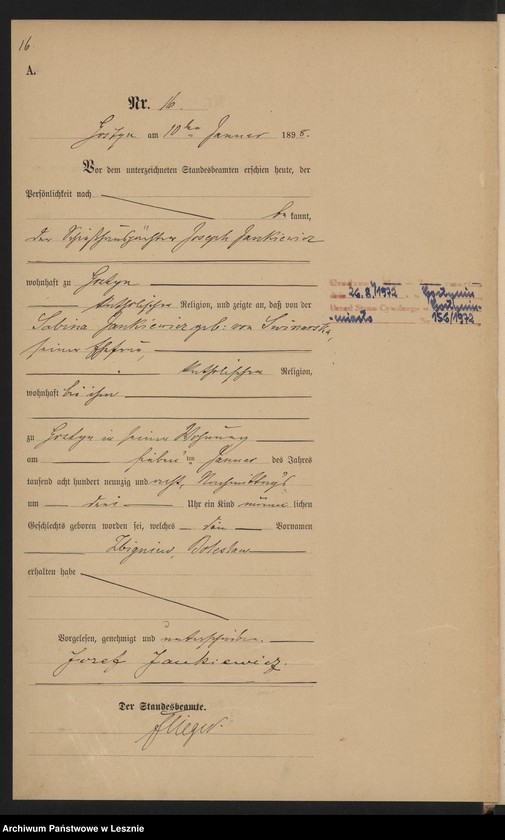 16
A.
Nr. 16.
Gostyn am 10ten Januar 1898.
Vor dem unterzeichneten Standesbeamten erschien heute, der
Persönlichkeit nach
be kannt,
der Schießhauspächter Joseph Jankiewicz
wohnhaft zu Gostyn
katholischer Religion, und zeigte an, daß von der
Sabina Jankiewicz geb: von Swinarska,
seiner Ehefrau,
katholischer Religion,
wohnhaft bei ihm
zu Gostyn in seiner Wohnung
am sieben ten Januar des Jahres
tausend acht hundert neunzig und acht, Nachmittags
um drei Uhr ein Kind männ lichen
Geschlechts geboren worden sei, welches den Vornamen
Zbigniew, Boleslaw
erhalten habe
Vorgelesen, genehmigt und unterschrieben.
Józef Jankiewicz.
Der Standesbeamte.
Flieger.
26.8.1972 Gostyniu
Stanu Cywilnego Gostyniu-
-miasto 156/1972
Archiwum Państwowe w Lesznie